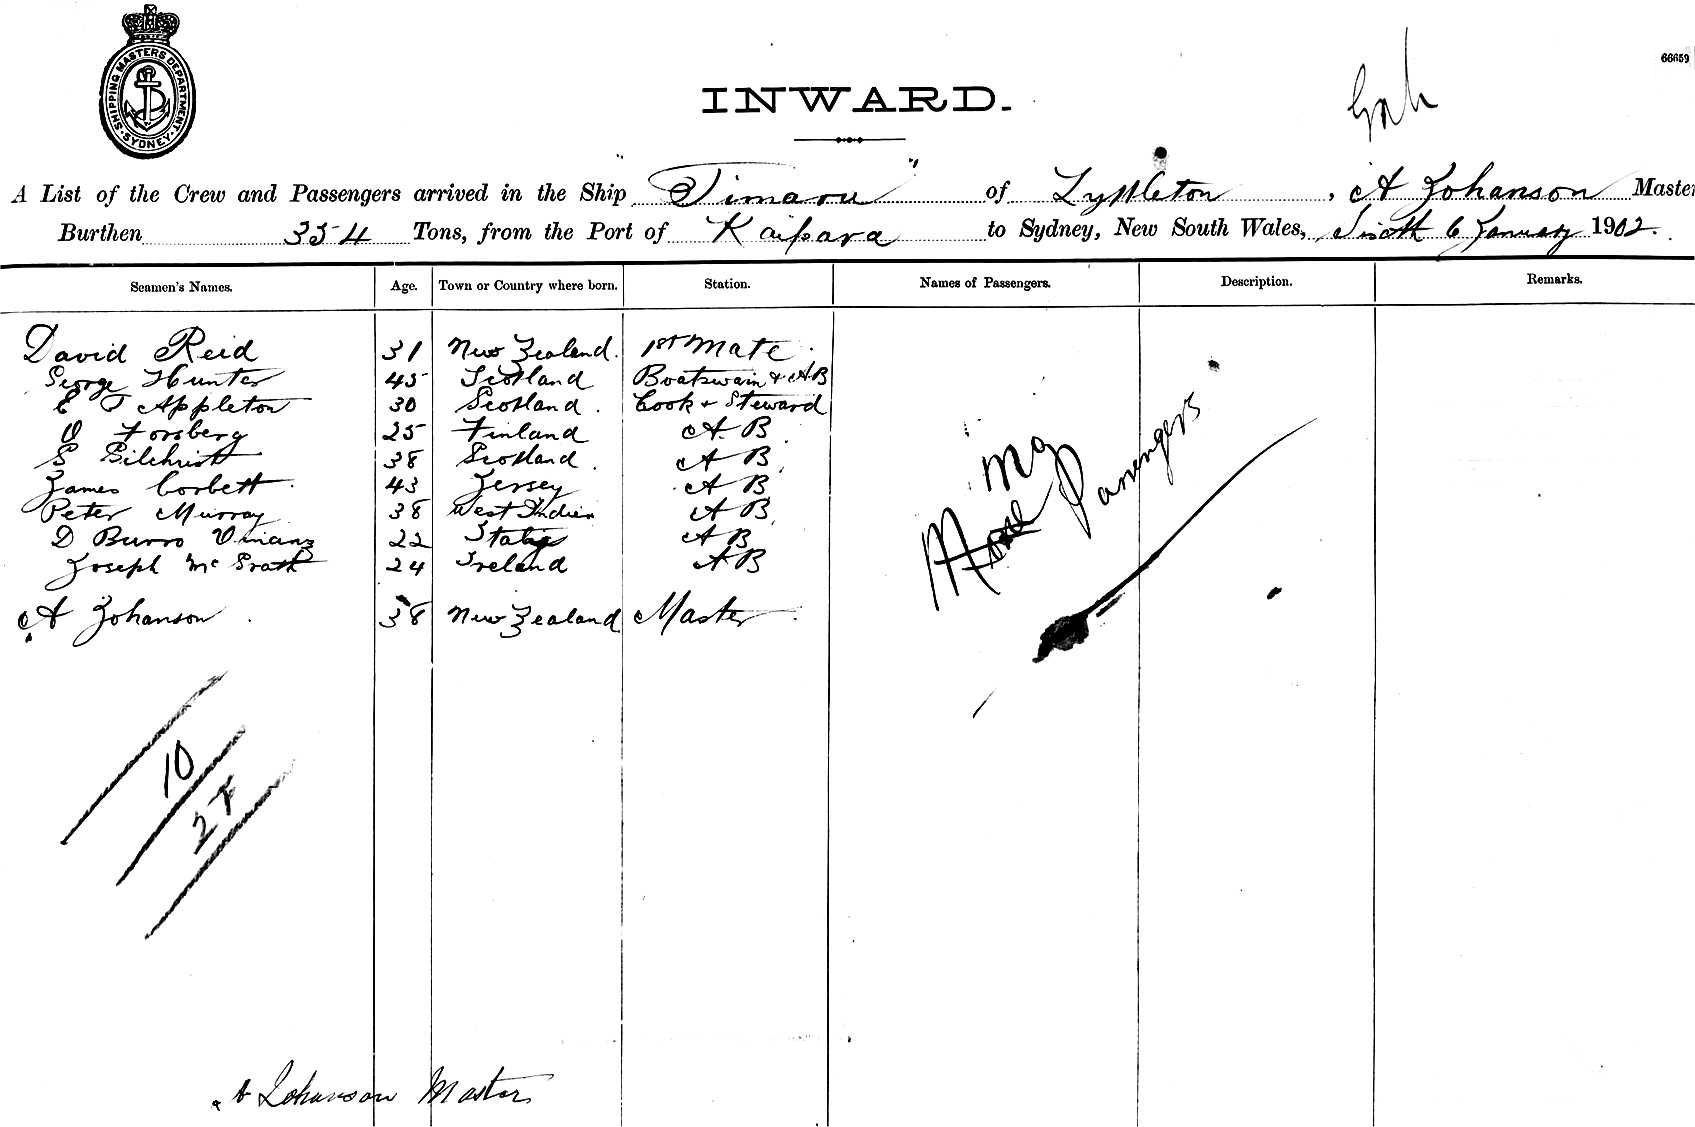 SHIPPING MASTERS DEPARTMENT · SYDNEY ·
66659
INWARD.
A List of the Crew and Passengers arrived in the Ship "Timaru" of Lyttleton, A Johanson Master
Burthen 334 Tons, from the Port of Kaipara to Sydney, New South Wales, 6 January 1902.
Seamen's Names. Age. Town or Country where born. Station. Names of Passengers. Description. Remarks.
David Reid 31 New Zealand. 1st Mate
George Hunter 45 Scotland Boatswain & A.B
E T Appleton 30 Scotland. Cook & Steward
O Forsberg 25 Finland A B
G Gilchrist 38 Scotland. A B
James Corbett 43 Jersey A B
Peter Murray 38 West Indies A B
D Burro 22 Italy A B
Joseph McGrath 24 Ireland A B
A Johanson 38 New Zealand Master
No
Passengers
10
A Johanson Master